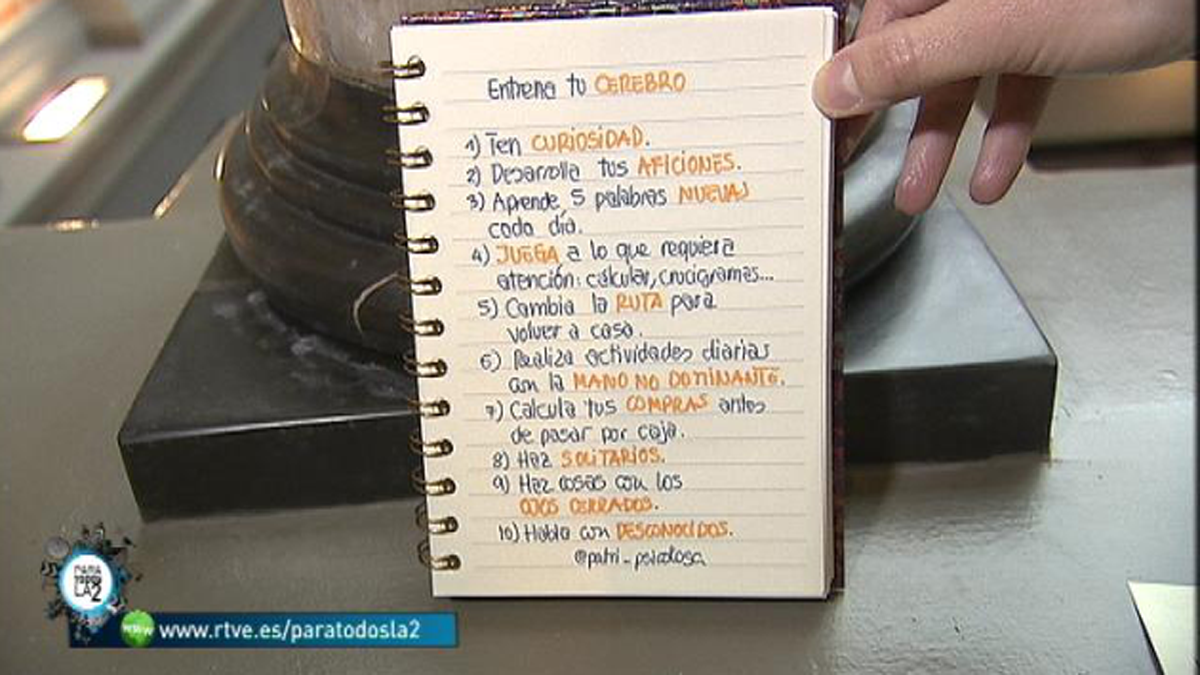 Entrena tu CEREBRO
1) Ten CURIOSIDAD.
2) Desarrolla tus AFICIONES.
3) Aprende 5 palabras NUEVAS
cada día.
4) JUEGA a lo que requiera
atención: calcular, crucigramas...
5) Cambia la RUTA para
volver a casa.
6) Realiza actividades diarias
con la MANO NO DOMINANTE.
7) Calcula tus COMPRAS antes
de pasar por caja.
8) Haz SOLITARIOS.
9) Haz cosas con los
OJOS CERRADOS.
10) Habla con DESCONOCIDOS.
@patri_psicologa
PARA
TODOS
LA2
www www.rtve.es/paratodosla2